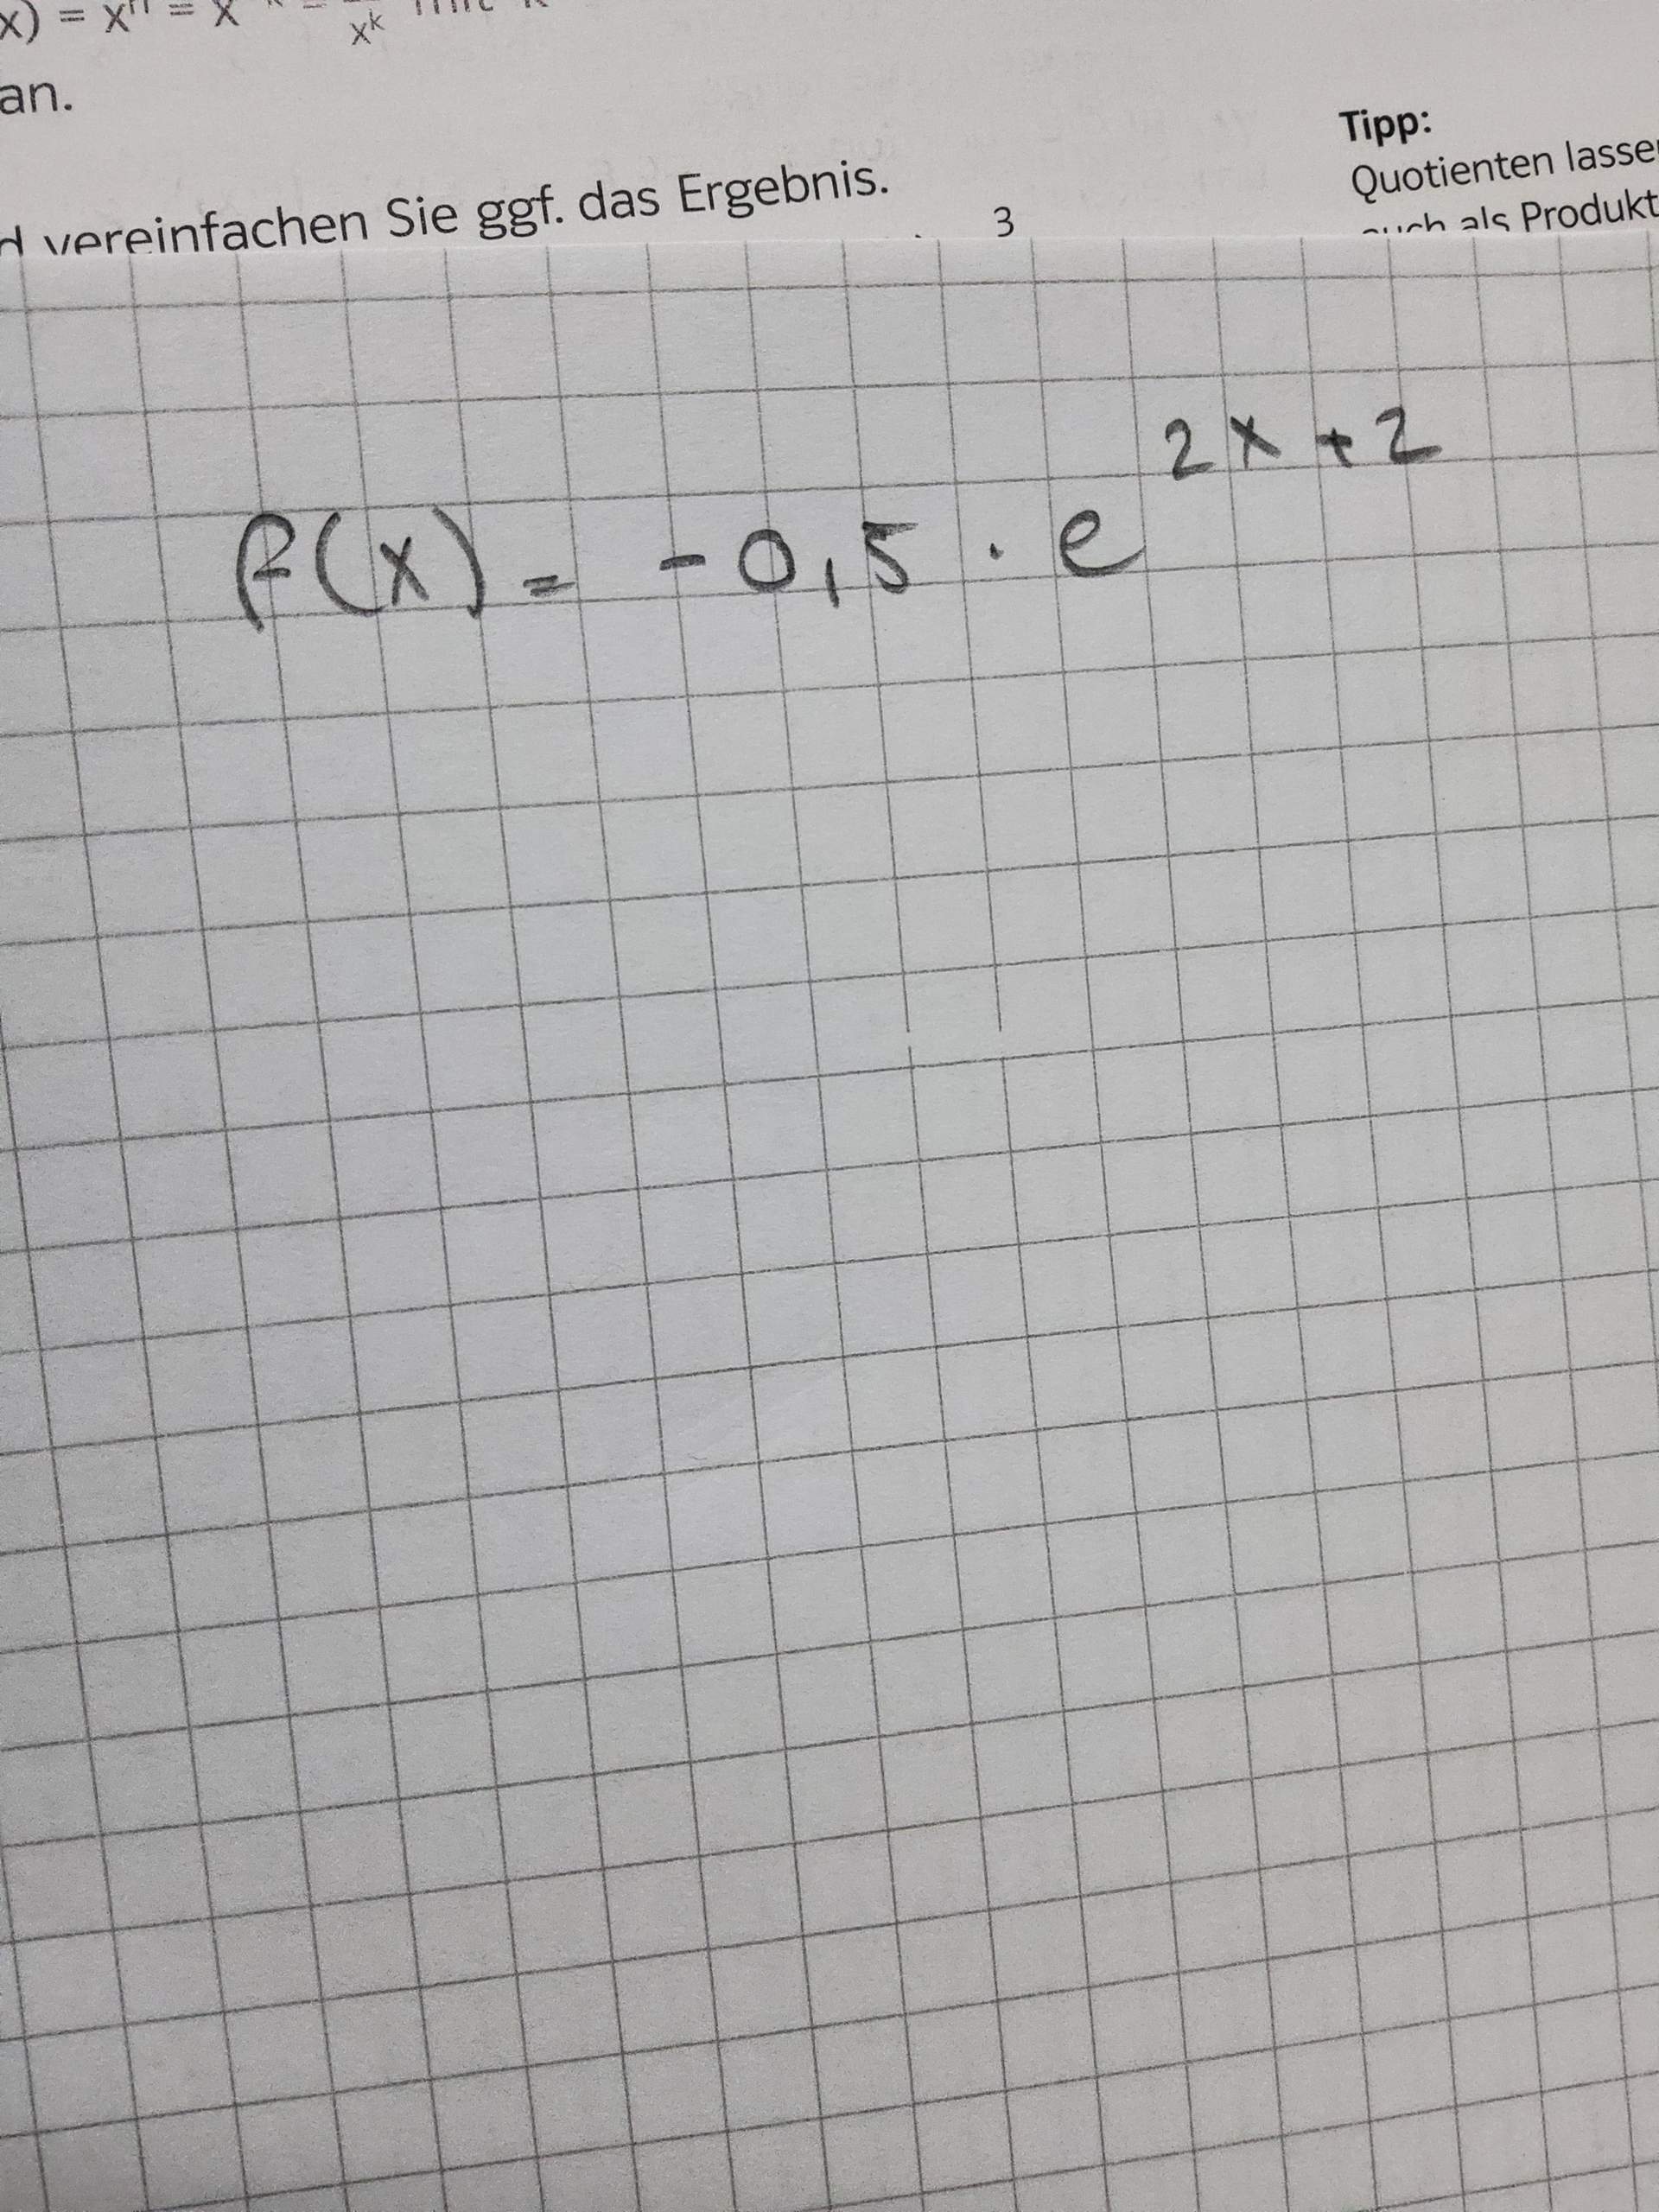 x) = xⁿ = x
xᵏ
an.
Tipp:
Quotienten lasse
auch als Produkt
d vereinfachen Sie ggf. das Ergebnis.
3
f(x) = -0,5 · e^{2x+2}